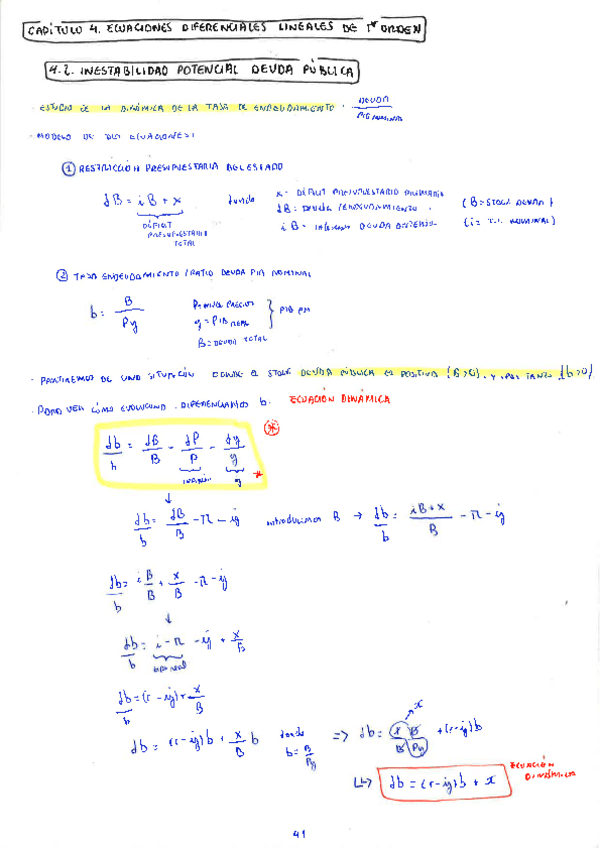 CAPÍTULO 4. ECUACIONES DIFERENCIALES LINEALES DE 1er ORDEN
4.2. INESTABILIDAD POTENCIAL DEUDA PÚBLICA
· ESTUDIO DE LA DINÁMICA DE LA TASA DE ENDEUDAMIENTO · DEUDA / PIB NOMINAL
· MODELO DE DOS ECUACIONES:
① RESTRICCIÓN PRESUPUESTARIA DEL ESTADO
dB = iB + x donde x = DÉFICIT PRESUPUESTARIO PRIMARIO
DÉFICIT PRESUPUESTARIO TOTAL
dB = DEUDA / ENDEUDAMIENTO (B = STOCK DEUDA)
iB = INTERESES DEUDA (i = T.I. NOMINAL)
② TASA ENDEUDAMIENTO / RATIO DEUDA PIB NOMINAL
b = B / Py
P = NIVEL PRECIOS
y = PIB REAL
} PIB pm
B = DEUDA TOTAL
· PARTIREMOS DE UNA SITUACIÓN DONDE EL STOCK DEUDA PÚBLICA ES POSITIVO (B>0) Y, POR TANTO (b>0)
· PARA VER CÓMO EVOLUCIONA DIFERENCIAMOS b. ECUACIÓN DINÁMICA
db/b = dB/B - dP/P - dy/y *
inflación g *
↓
db/b = dB/B - π - g introducimos B → db/b = iB+x / B - π - g
db/b = i B/B + x/B - π - g
↓
db/b = i - π - g + x/B
tipo real
db/b = (r - g) + x/B
db = (r-g)b + x/B b donde b = B/Py => db = x B / B Py + (r-g)b
x
↳ db = (r-g)b + x ECUACIÓN DINÁMICA
41